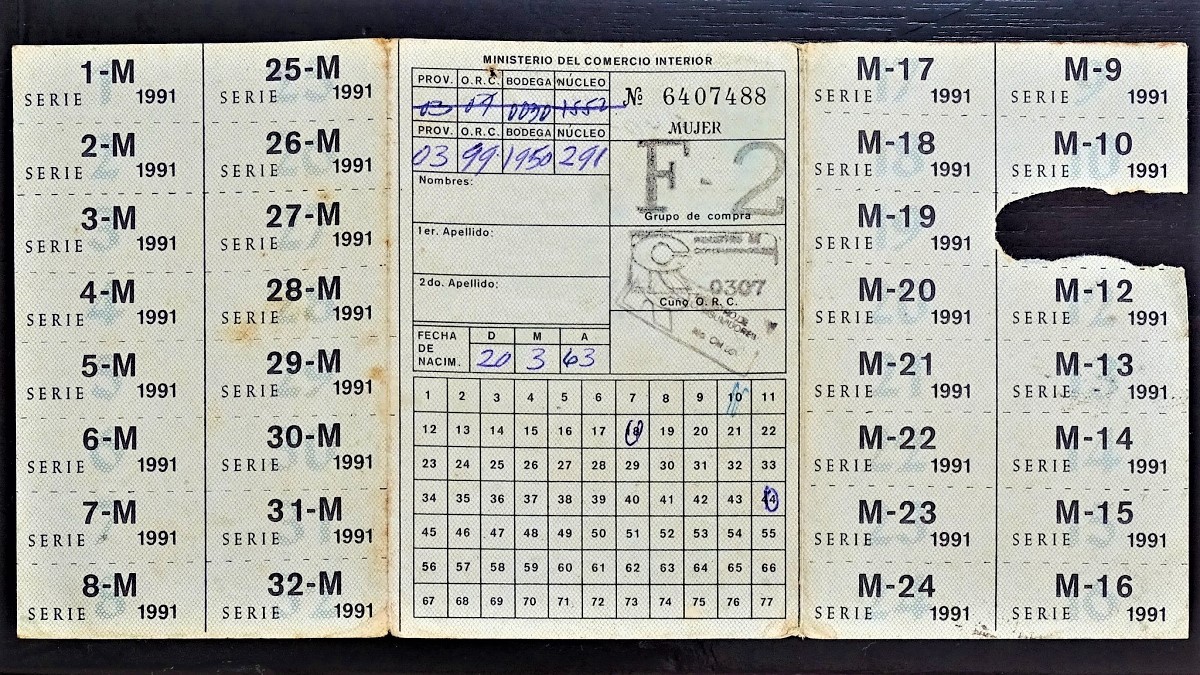 1-M
SERIE 1991
2-M
SERIE 1991
3-M
SERIE 1991
4-M
SERIE 1991
5-M
SERIE 1991
6-M
SERIE 1991
7-M
SERIE 1991
8-M
SERIE 1991
25-M
SERIE 1991
26-M
SERIE 1991
27-M
SERIE 1991
28-M
SERIE 1991
29-M
SERIE 1991
30-M
SERIE 1991
31-M
SERIE 1991
32-M
SERIE 1991
MINISTERIO DEL COMERCIO INTERIOR
PROV. O.R.C. BODEGA NÚCLEO
03 07 0030 1552
PROV. O.R.C. BODEGA NÚCLEO
03 99 1950 291
Nombres:
1er. Apellido:
2do. Apellido:
FECHA DE NACIM. D M A
20 3 63
№ 6407488
MUJER
F-2
Grupo de compra
0307
Cuño O.R.C.
1 2 3 4 5 6 7 8 9 10 11
12 13 14 15 16 17 18 19 20 21 22
23 24 25 26 27 28 29 30 31 32 33
34 35 36 37 38 39 40 41 42 43 44
45 46 47 48 49 50 51 52 53 54 55
56 57 58 59 60 61 62 63 64 65 66
67 68 69 70 71 72 73 74 75 76 77
M-17
SERIE 1991
M-18
SERIE 1991
M-19
SERIE 1991
M-20
SERIE 1991
M-21
SERIE 1991
M-22
SERIE 1991
M-23
SERIE 1991
M-24
SERIE 1991
M-9
SERIE 1991
M-10
SERIE 1991
M-12
SERIE 1991
M-13
SERIE 1991
M-14
SERIE 1991
M-15
SERIE 1991
M-16
SERIE 1991